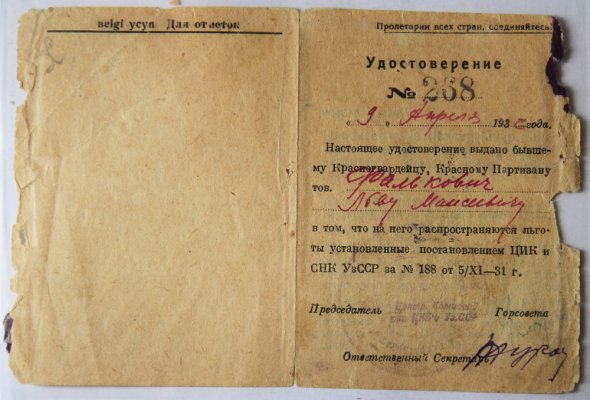 belgi ucun Для отметок
Пролетарии всех стран, соединяйтесь
Удостоверение
№ 268
„ 9 „ Апреля 193 года.
Настоящее удостоверение выдано бывше-
му Красногвардейцу, Красному Партизану
тов. Фалькович
Льву Моисеевичу
в том, что на него распространяются льго-
ты установленные постановлением ЦИК и
СНК УзССР за № 188 от 5/XI—31 г.
Председатель Горсовета
Центр. Комиссия
при ЦИК'е УзССР
Ответственный Секретарь